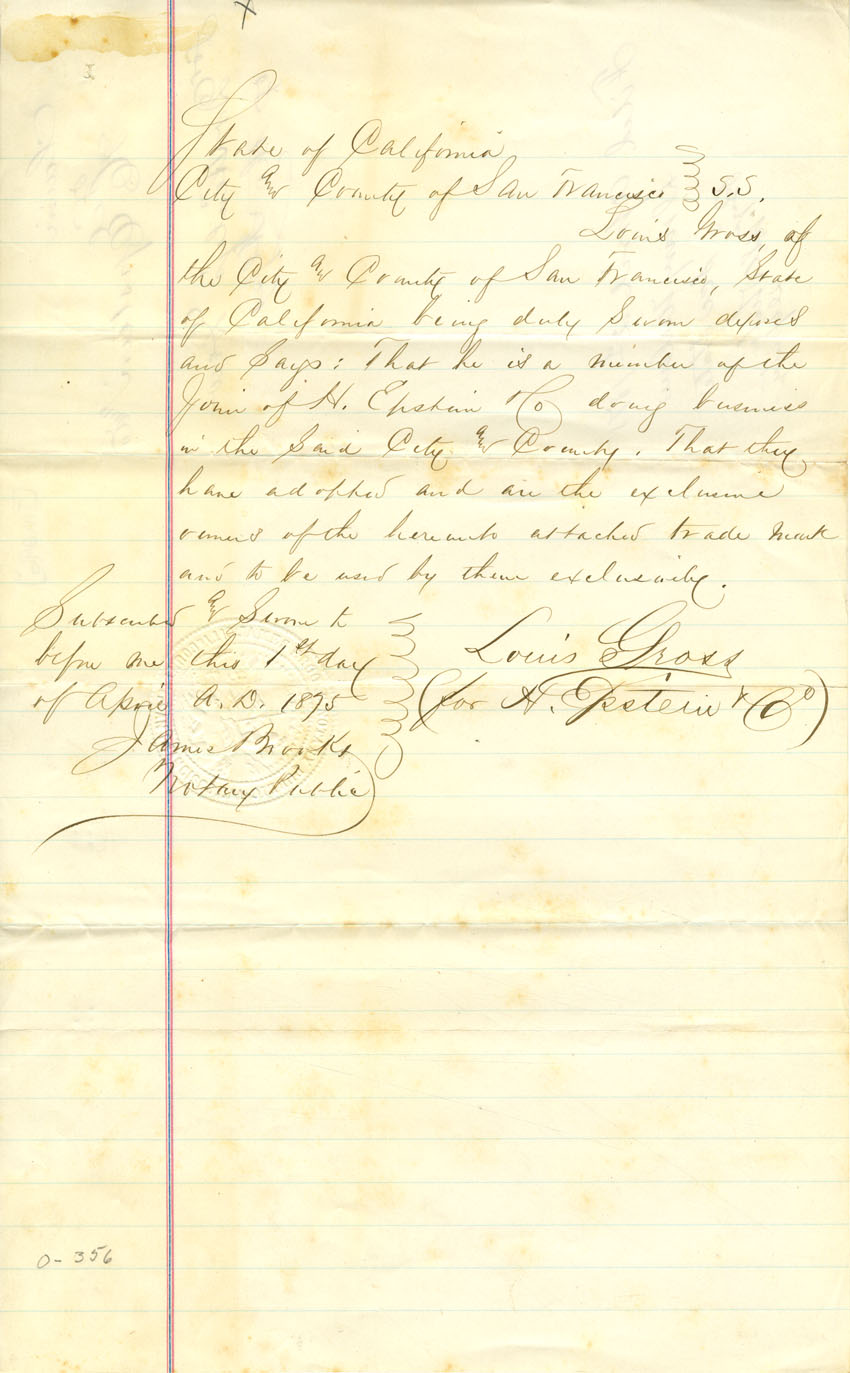 X
State of California
City and County of San Francisco } S.S.
Louis Gross, of
the City and County of San Francisco, State
of California being duly Sworn deposes
and Says: That he is a member of the
firm of H. Epstein & Co doing business
in the Said City and County. That they
have adopted and are the exclusive
owners of the hereunto attached trade mark
and to be used by them exclusively.
Subscribed and Sworn to
before me this 1st day
of April A.D. 1895
James Brooks
Notary Public
Louis Gross
(for H. Epstein & Co)
0-356